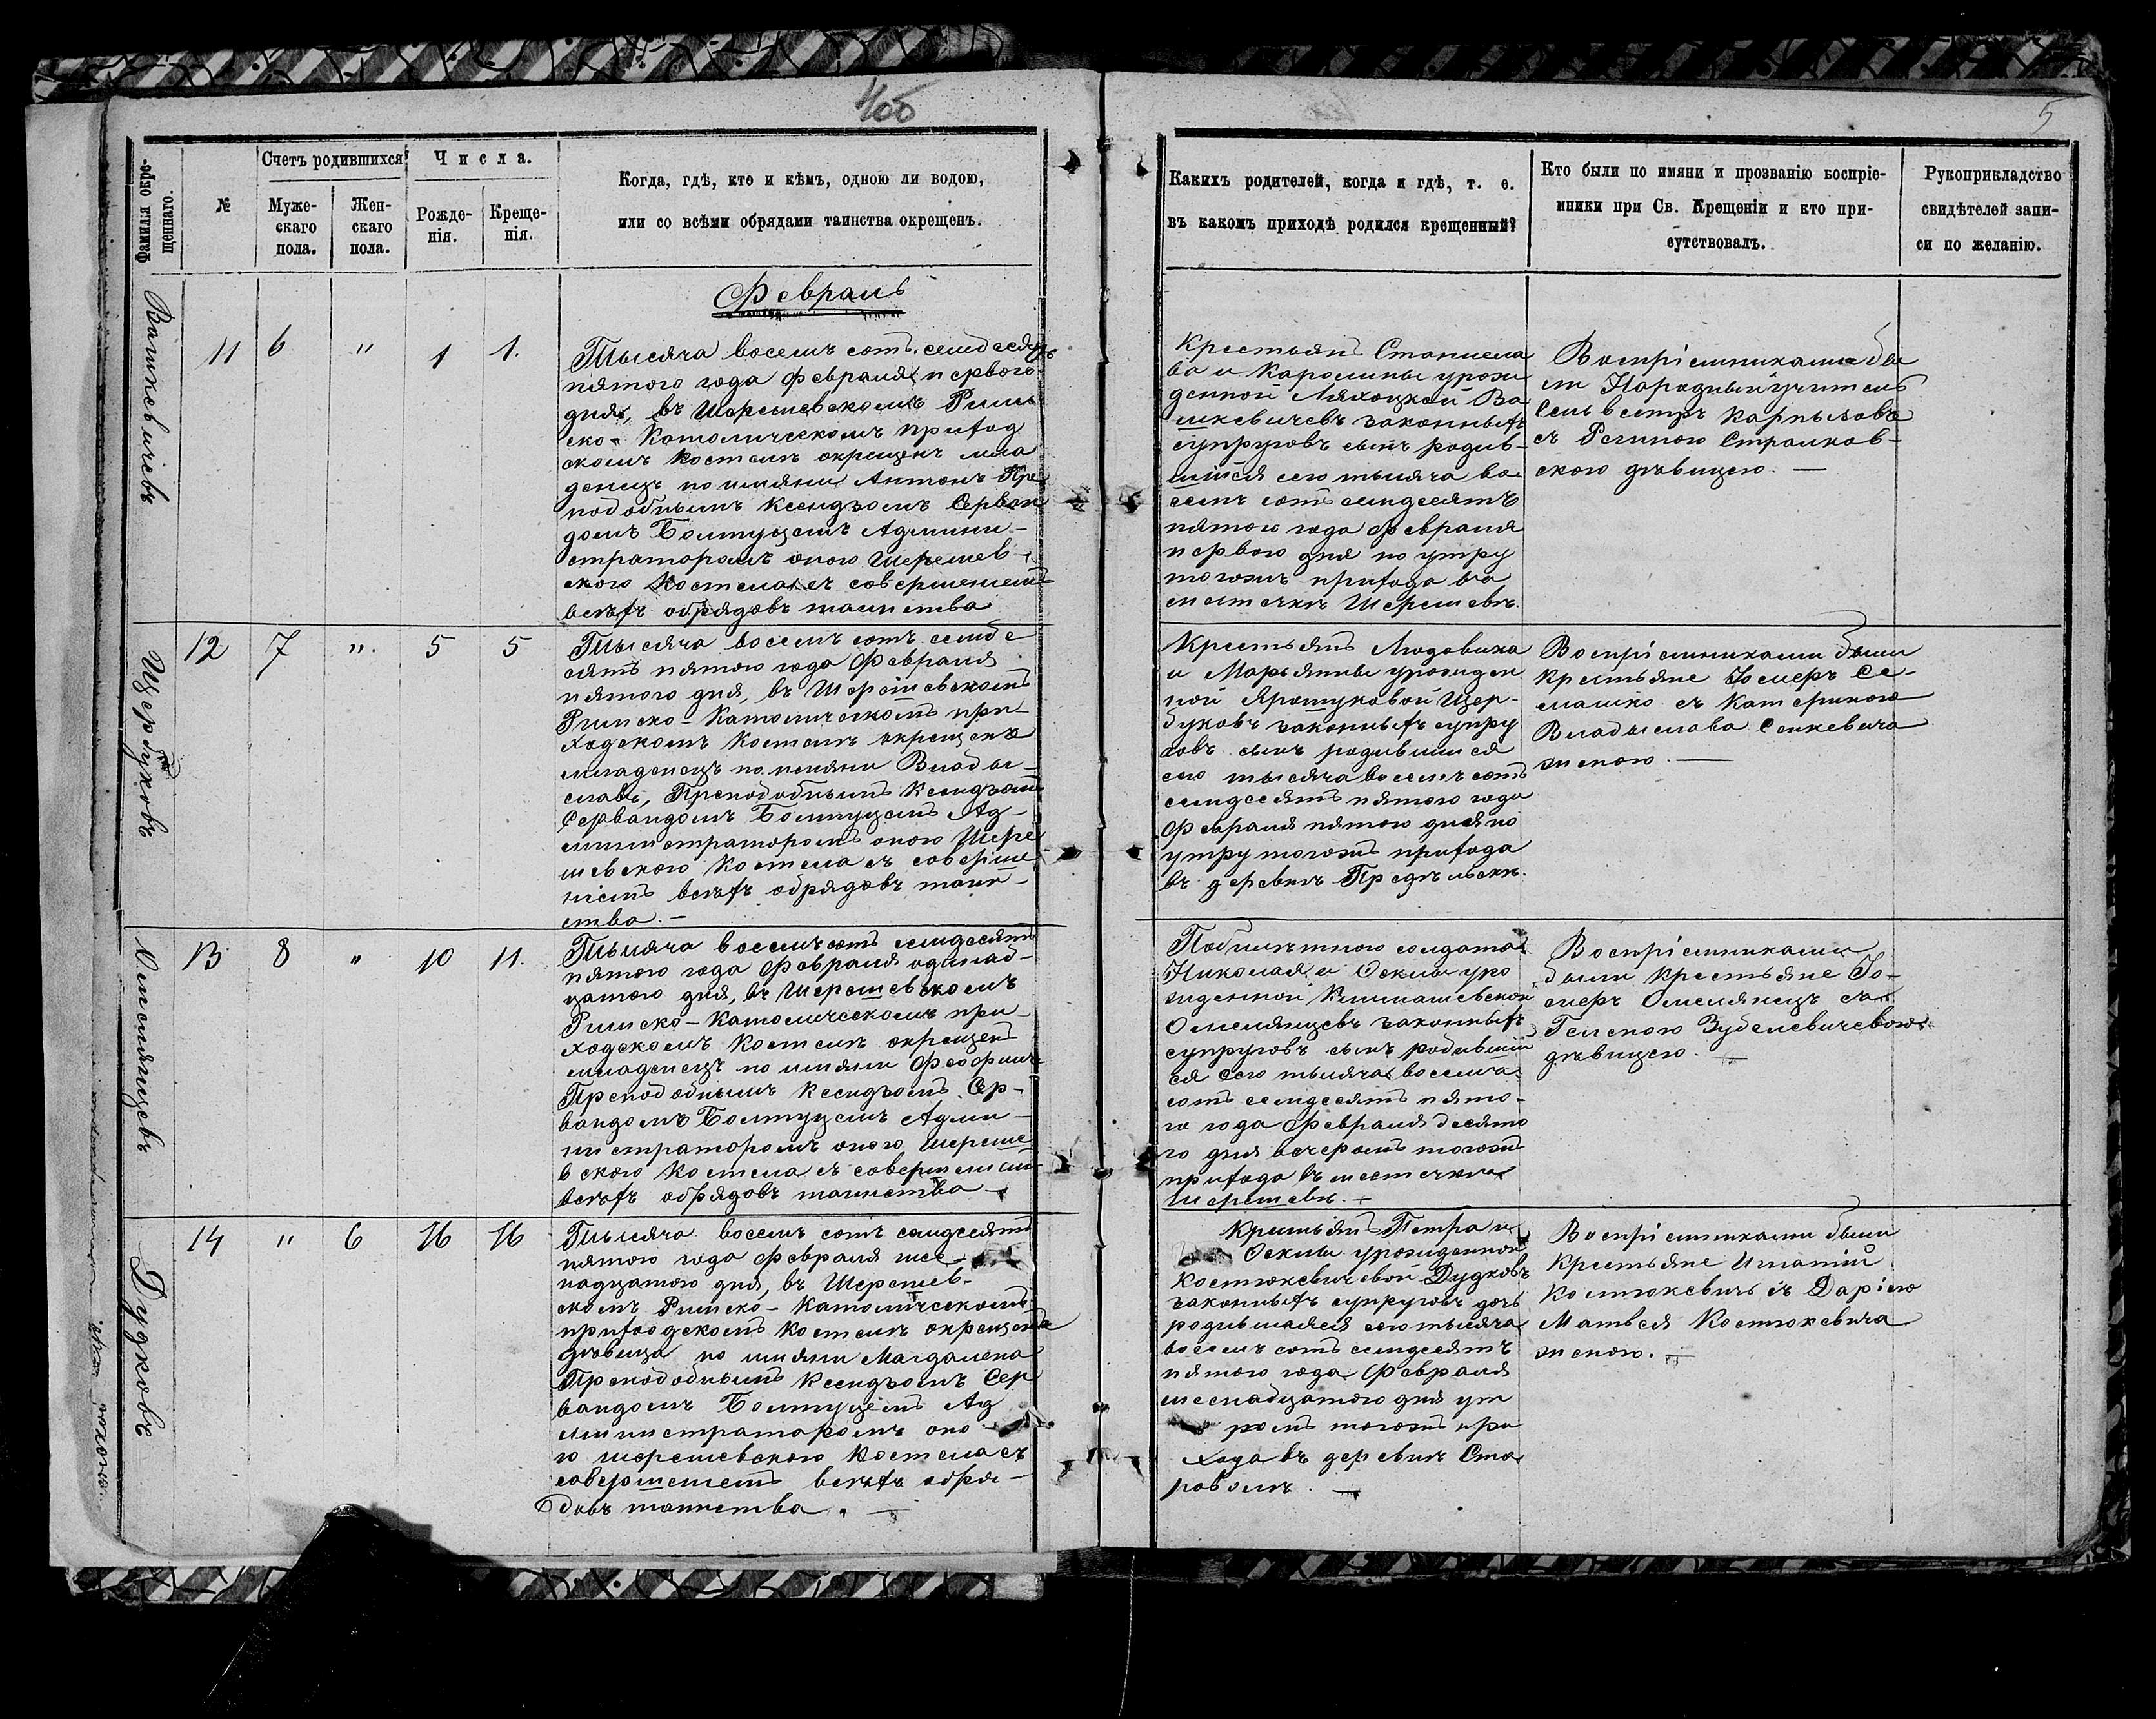 4об
5
Фамилія окре-
щеннаго.
№
Счетъ родившихся
Муже-
скаго
пола.
Жен-
скаго
пола.
Числа.
Рожде-
нія.
Креще-
нія.
Когда, гдѣ, кто и кѣмъ, одною ли водою,
или со всѣми обрядами таинства окрещенъ.
Какихъ родителей, когда и гдѣ, т. е.
въ какомъ приходѣ родился крещенный?
Кто были по имяни и прозванію воспріе-
мники при Св. Крещеніи и кто при-
сутствовалъ.
Рукоприкладство
свидѣтелей запи-
си по желанію.
Февраль
Вашкевичевъ
11 6 " 1 1.
Тысяча восемъ сотъ семдесятъ
пятого года Февраля первого
дня, въ Шерешевскомъ Рим
ско-Католическомъ приход
скомъ Костелѣ окрещенъ мла
денецъ по имяни Антонъ Пре
подобнымъ Ксендзомъ Серван
домъ Болтуцемъ Админи-
страторомъ оного Шерешев-
ского Костела съ совершеніемъ
всѣхъ обрядовъ таинства
Крестьянъ Станисла
ва и Каролины урож
денной Ляхоцкой Ва
шкевичевъ законныхъ
супруговъ сынъ родив-
шійся сего тысяча во
семъ сотъ семдесятъ
пятого года Февраля
первого дня по утру
тогожъ прихода въ
мѣстечкѣ Шерешевѣ.
Воспріемниками бы
ли Народный учитель
Сильвестръ Карпызовъ
съ Региною Страчков-
скою дѣвицею. —
Щербуковъ
12 7 ". 5 5
Тысяча восемъ сотъ семде
сятъ пятого года Февраля
пятого дня, въ Шерешевскомъ
Римско-Католическомъ при-
ходскомъ Костелѣ окрещенъ
младенецъ по имяни Влады-
славъ, Преподобнымъ Ксендзомъ
Сервандомъ Болтуцемъ Ад-
министраторомъ оного Шере
шевского Костела съ соверше
ніемъ всѣхъ обрядовъ таин-
ства. —
Крестьянъ Людовика
и Марьянны урожден
ной Ярошуковой Щер-
буковъ законныхъ супру
говъ сынъ родившійся
сего тысяча восемъ сотъ
семдесятъ пятого года
Февраля пятого дня по
утру тогожъ прихода
въ деревнѣ Предѣльскѣ.
Воспріемниками были
крестьяне Іосифъ Се-
машко съ Катериною
Владыслава Сенкевича
женою. —
Омелянцевъ
13 8 " 10 11.
Тысяча восемъ сотъ семдесятъ
пятого года Февраля одинад-
цатого дня, въ Шерешевскомъ
Римско-Католическомъ при-
ходскомъ Костелѣ окрещенъ
младенецъ по имяни Феофилъ
Преподобнымъ Ксендзомъ Сер-
вандомъ Болтуцемъ Адми-
нистраторомъ оного Шереше
вского Костела съ совершеніемъ
всѣхъ обрядовъ таинства —
Побилетного солдата
Николая и Оеклы уро
жденной Климашевской
Омелянцевъ законныхъ
супруговъ сынъ родивший
ся сего тысяча восемъ
сотъ семдесятъ пято-
го года Февраля десято
го дня вечеромъ тогожъ
прихода въ мѣстечкѣ
Шерешевѣ. —
Воспріемниками
были крестьяне Іо-
сифъ Омелянецъ съ
Геленою Зубелевичевою
дѣвицею. —
Дудковъ
14 " 6 16 16
Тысяча восемъ сотъ семдесятъ
пятого года Февраля шес-
надцатого дня, въ Шерешев-
скомъ Римско-Католическомъ
приходскомъ Костелѣ окрещена
дѣвица по имяни Магдалена
Преподобнымъ Ксендзомъ Сер
вандомъ Болтуцемъ Ад
министраторомъ оно
го шерешевского Костела съ
совершеніемъ всѣхъ обря-
довъ таинства. —
Крестьянъ Петра и
Оеклы урожденной
Костюкевичевой Дудковъ
законныхъ супруговъ дочь
родившаяся сего тысяча
восемъ сотъ семдесятъ
пятого года Февраля
шеснадцатого дня ут
ромъ тогожъ при
хода въ деревнѣ Ста
ровомъ. —
Воспріемниками были
крестьяне Игнатій
Костюкевичъ съ Даріею
Матвея Костюкевича
женою. —